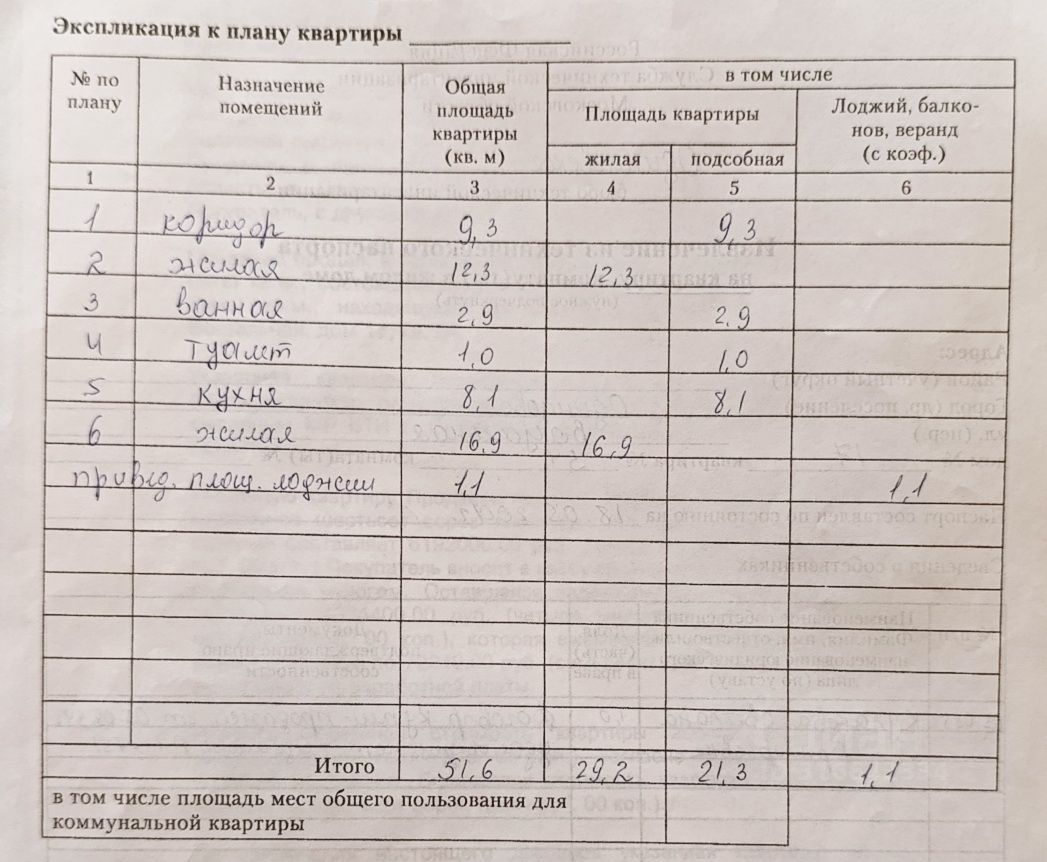 Экспликация к плану квартиры
№ по плану
Назначение помещений
Общая площадь квартиры (кв. м)
в том числе
Площадь квартиры
Лоджий, балко-
нов, веранд
(с коэф.)
жилая подсобная
1 2 3 4 5 6
1 коридор 9,3 9,3
2 жилая 12,3 12,3
3 ванная 2,9 2,9
4 туалет 1,0 1,0
5 кухня 8,1 8,1
6 жилая 16,9 16,9
привед. площ. лоджии 1,1 1,1
Итого 51,6 29,2 21,3 1,1
в том числе площадь мест общего пользования для
коммунальной квартиры